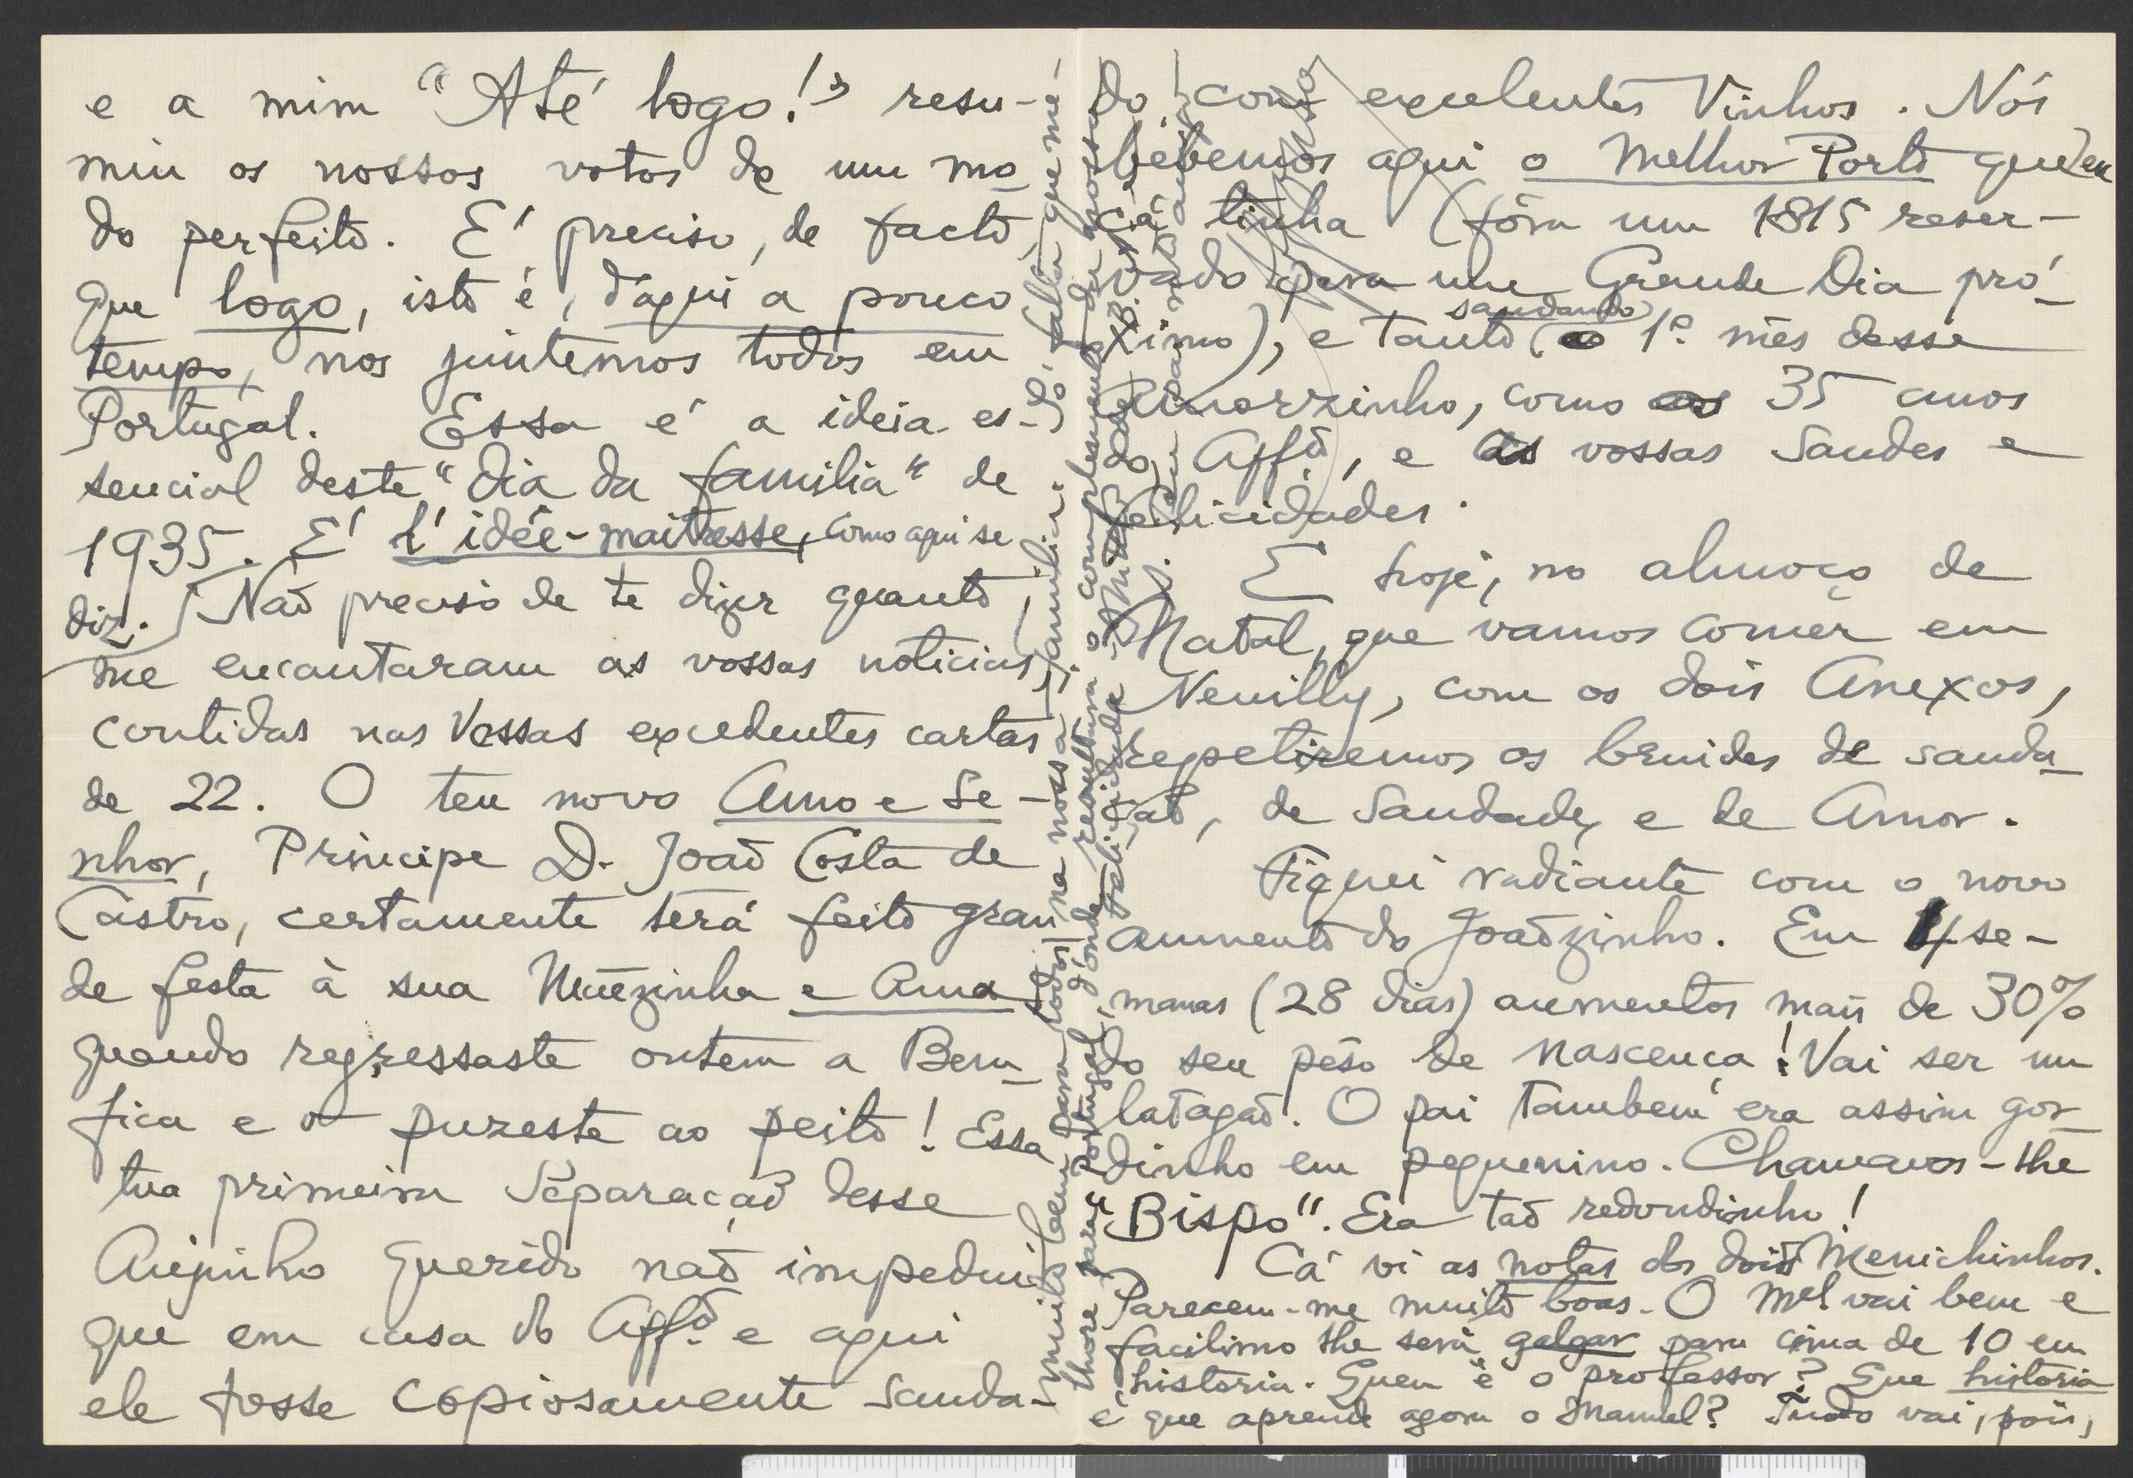 e a mim "Até logo!" resu-
miu os nossos votos de um mo-
do perfeito. E' preciso, de facto,
que logo, isto é, d'aqui a pouco
tempo, nos juntemos todos em
Portugal. Essa é a ideia es-
sencial deste "dia da familia" de
1935. E' l'idée-maitresse, como aqui se
diz. Não preciso de te dizer quanto
me encantaram as vossas noticias,
contidas nas vossas excedentes cartas
de 22. O teu novo Amo e Se-
nhor, Principe D. João Costa de
Castro, certamente terá feito gran
de festa à sua Mãezinha e Ama
quando regressaste ontem a Bem-
fica e o puzeste ao peito! Essa
tua primeira separação desse
Anjinho querido não impediu
que em casa do Affº. e aqui
ele fosse copiosamente sauda-
do! com excelentes Vinhos. Nós
bebemos aqui o melhor Porto que eu
cá tinha (fôra um 1815 reser-
vado para um Grande Dia pró-
ximo), e tanto saudando o 1º. mês desse
Amorzinho, como os 35 anos
do Affº, e as vossas Saudes e
felicidades.
E hoje, no almoço de
Natal, que vamos comêr em
Neuilly, com os dois Anexos,
repetiremos os brindes de sauda-
ção, de Saudade, e de Amor.
Fiquei radiante com o novo
aumento do Joãozinho. Em 4 se-
manas (28 dias) aumentos mais de 30%
do seu pêso de nascença! Vai ser um
latagão. O pai tambem era assim gor-
dinho em pequenino. Chamavas-lhe
"Bispo". Era tão redondinho!
Cá vi as notas dos dois Menichinhos.
Parecem-me muito boas. O Mel vai bem e
facilimo lhe será galgar para cima de 10 em
historia. Quem é o professor? Que historia
é que aprende agora o Manuel? Tudo vai, pois,
muito bem para todos na nossa familia. Só falta que me-
lhore para Portugal, d'onde resultaria o complemento da nossa
felicidade